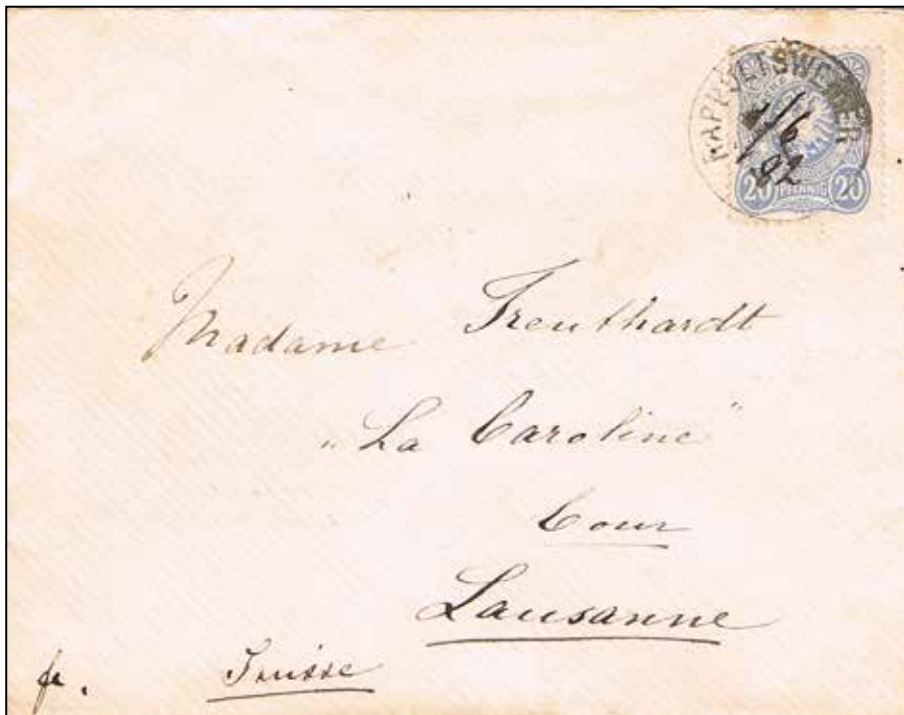 RAPPOLTSWEILER
1/6
82
20 PFENNIG 20
Madame Treuthardt
"La Caroline"
Cour
Lausanne
fr. Suisse